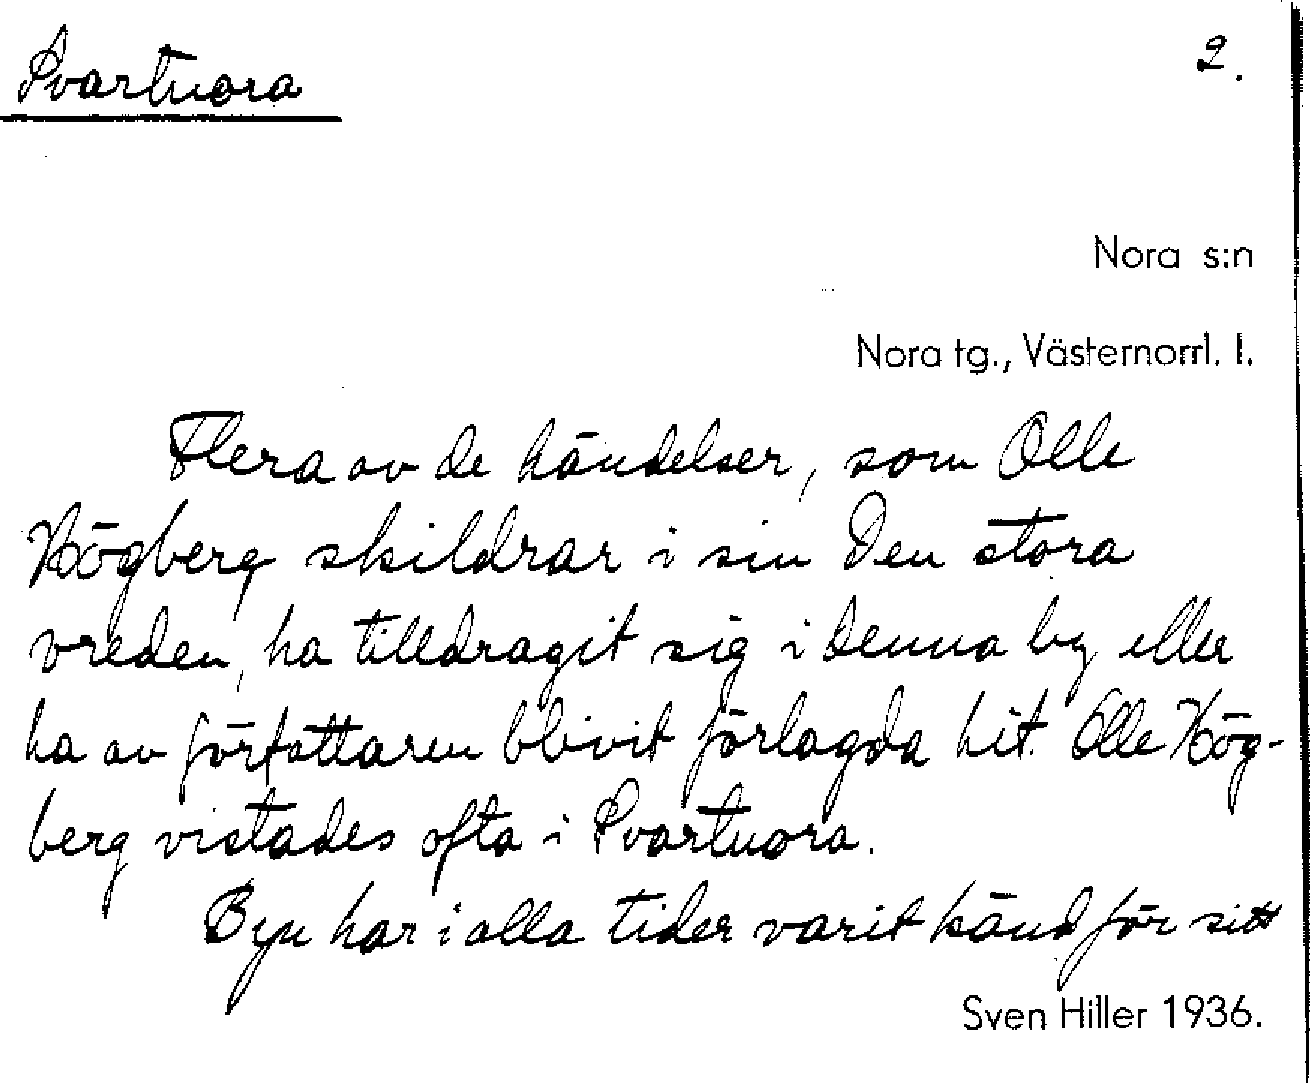 Svartnora
2.
Nora s:n
Nora tg., Västernorrl. l.
Flera av de händelser, som Olle
Högberg skildrar i sin Den stora
vreden, ha tilldragit sig i denna by eller
ha av författaren blivit förlagda hit. Olle Hög-
berg vistades ofta i Svartnora.
Byn har i alla tider varit känd för sitt
Sven Hiller 1936.